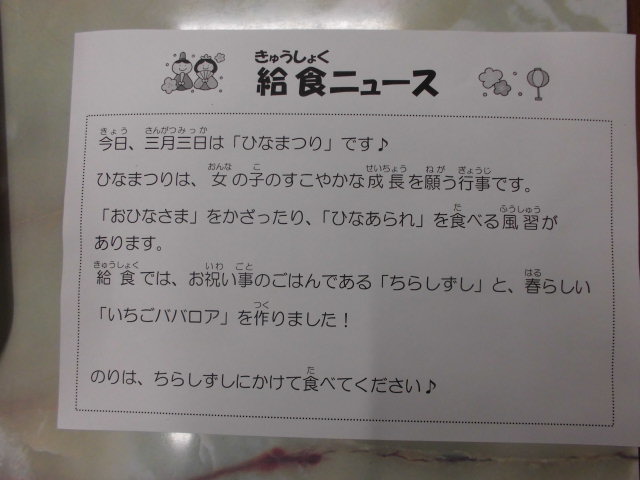 きゅうしょく
給食ニュース
きょう さんがつみっか
今日、三月三日は「ひなまつり」です♪
おんな こ せいちょう ねが ぎょうじ
ひなまつりは、女の子のすこやかな成長を願う行事です。
た ふうしゅう
「おひなさま」をかざったり、「ひなあられ」を食べる風習が
あります。
きゅうしょく いわ ごと はる
給食では、お祝い事のごはんである「ちらしずし」と、春らしい
つく
「いちごババロア」を作りました！
た
のりは、ちらしずしにかけて食べてください♪